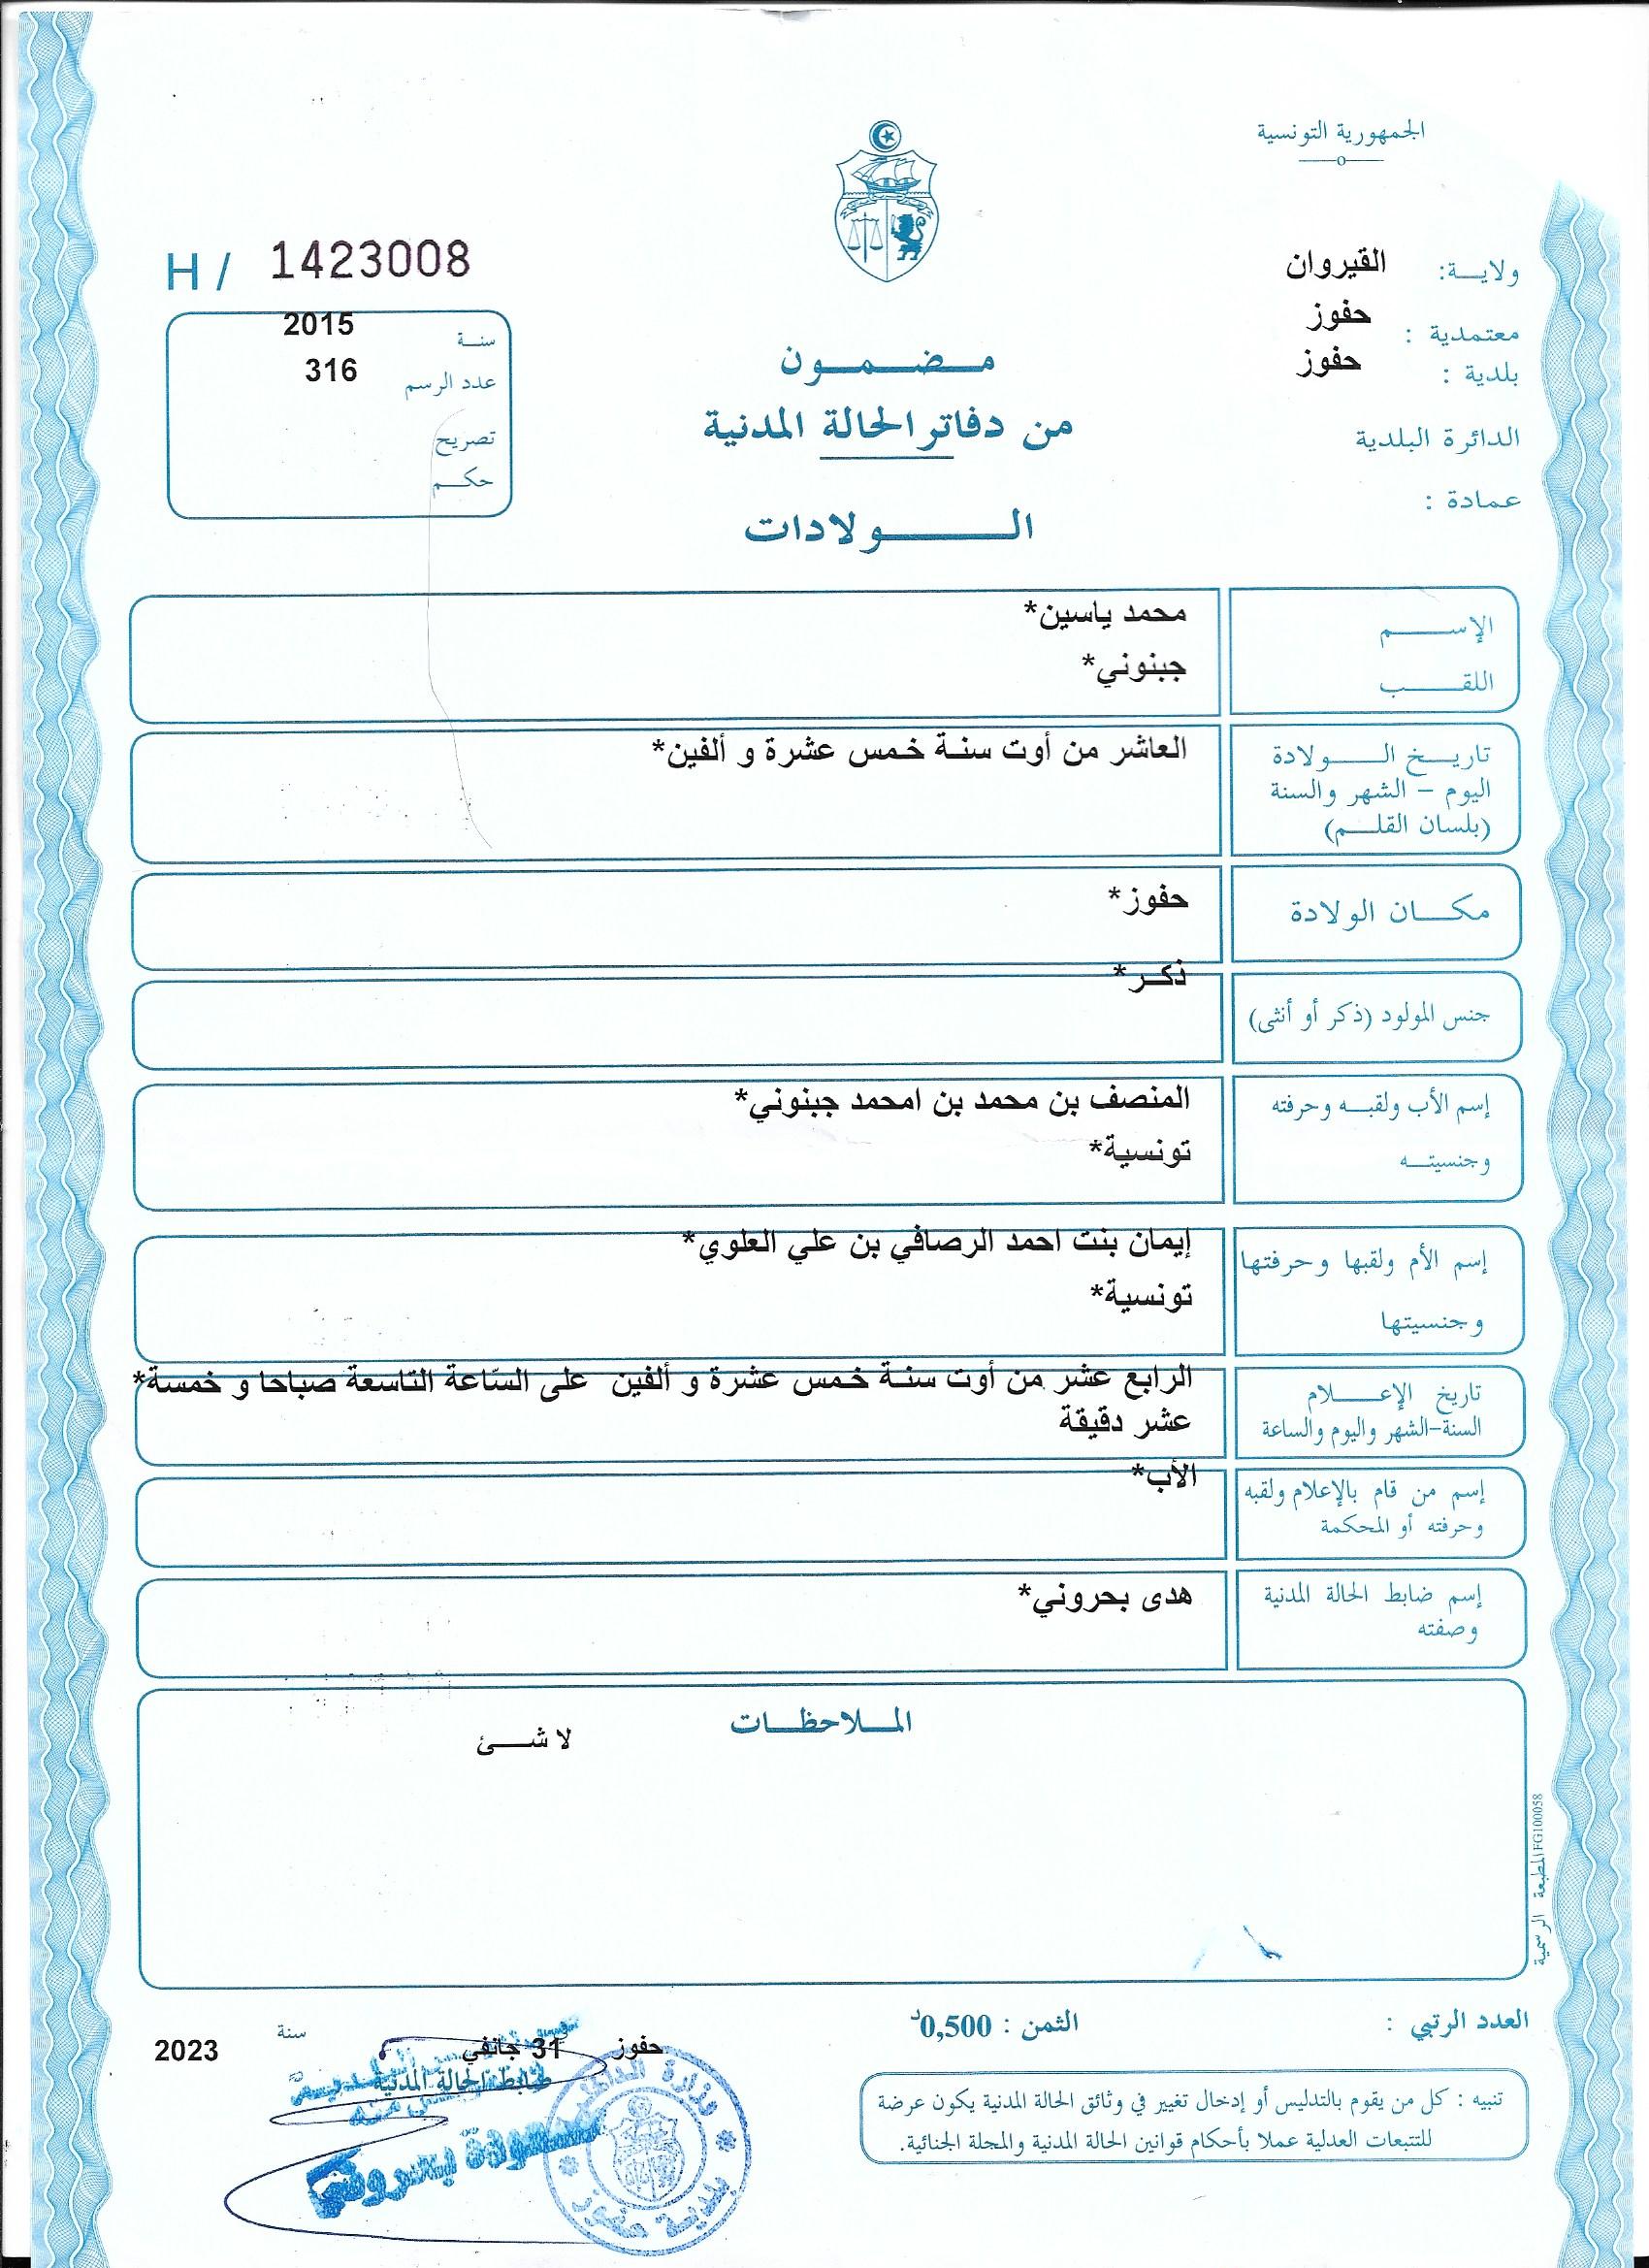 الجمهورية التونسية
ولايـــة: القيروان
معتمدية : حفوز
بلدية : حفوز
الدائرة البلدية
عمادة :
H / 1423008
سنـــة 2015
عدد الرسم 316
تصريح
حكـــم
مـــضـــمـــون
من دفاتر الحالة المدنية
الـــــولادات
الإســــــم محمد ياسين*
اللقـــــب جبنوني*
تاريـــخ الـــــولادة العاشر من أوت سنـة خـمس عشرة و ألفين*
اليوم – الشهر والسنة
(بلسان القلـــم)
مكـــان الولادة حفوز*
جنس المولود (ذكر أو أنثى) ذكـر*
إسم الأب ولقبـــه وحرفته المنصف بن محمد بن امحمد جبنوني*
وجنسيتـــه تونسية*
إسم الأم ولقبها وحرفتها إيمان بنت احمد الرصافي بن علي العلوي*
وجنسيتها تونسية*
تاريخ الإعـــــلام الرابع عشر من أوت سنـة خـمس عشرة و ألفين على السّاعة التاسعة صباحا و خمسة*
السنة-الشهر واليوم والساعة عشر دقيقة
إسم من قام بالإعلام ولقبه الأب*
وحرفته أو المحكمة
إسم ضابط الحالة المدنية هدى بحروني*
وصفته
المـــلاحظـــات
لا شـــئ
المطبعة الرسمية FG100058
العدد الرتبي :
الثمن : 0,500د
حفوز 31 جانفي سنة 2023
ضابط الحالة المدنية
وزارة الداخلية
بلدية حفوز
تنبيه : كل من يقوم بالتدليس أو إدخال تغيير في وثائق الحالة المدنية يكون عرضة
للتتبعات العدلية عملا بأحكام قوانين الحالة المدنية والمجلة الجنائية.